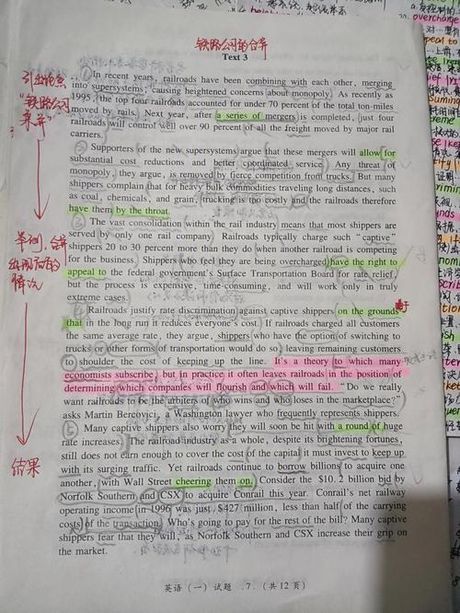 铁路公司的合并
Text 3
① In recent years, railroads have been combining with each other, merging
into supersystems, causing heightened concerns about monopoly. As recently as
1995, the top four railroads accounted for under 70 percent of the total ton-miles
moved by rails. Next year, after a series of mergers is completed, just four
railroads will control well over 90 percent of all the freight moved by major rail
carriers.
② Supporters of the new supersystems argue that these mergers will allow for
substantial cost reductions and better coordinated service. Any threat of
monopoly, they argue, is removed by fierce competition from trucks. But many
shippers complain that for heavy bulk commodities traveling long distances, such
as coal, chemicals, and grain, trucking is too costly and the railroads therefore
have them by the throat.
③ The vast consolidation within the rail industry means that most shippers are
served by only one rail company. Railroads typically charge such "captive"
shippers 20 to 30 percent more than they do when another railroad is competing
for the business. Shippers who feel they are being overcharged have the right to
appeal to the federal government's Surface Transportation Board for rate relief,
but the process is expensive, time-consuming, and will work only in truly
extreme cases.
④ Railroads justify rate discrimination against captive shippers on the grounds
that in the long run it reduces everyone's cost. If railroads charged all customers
the same average rate, they argue, shippers who have the option of switching to
trucks or other forms of transportation would do so, leaving remaining customers
to shoulder the cost of keeping up the line. It's a theory to which many
economists subscribe, but in practice it often leaves railroads in the position of
determining which companies will flourish and which will fail. "Do we really
want railroads to be the arbiters of who wins and who loses in the marketplace?"
asks Martin Bercovici, a Washington lawyer who frequently represents shippers.
⑤ Many captive shippers also worry they will soon be hit with a round of huge
rate increases. The railroad industry as a whole, despite its brightening fortunes,
still does not earn enough to cover the cost of the capital it must invest to keep up
with its surging traffic. Yet railroads continue to borrow billions to acquire one
another, with Wall Street cheering them on. Consider the $10.2 billion bid by
Norfolk Southern and CSX to acquire Conrail this year. Conrail's net railway
operating income in 1996 was just $427 million, less than half of the carrying
costs of the transaction. Who's going to pay for the rest of the bill? Many captive
shippers fear that they will, as Norfolk Southern and CSX increase their grip on
the market.
英语（一）试题 .7. （共12页）
引出论点
"铁路公司
合并"
举例，合并
结果